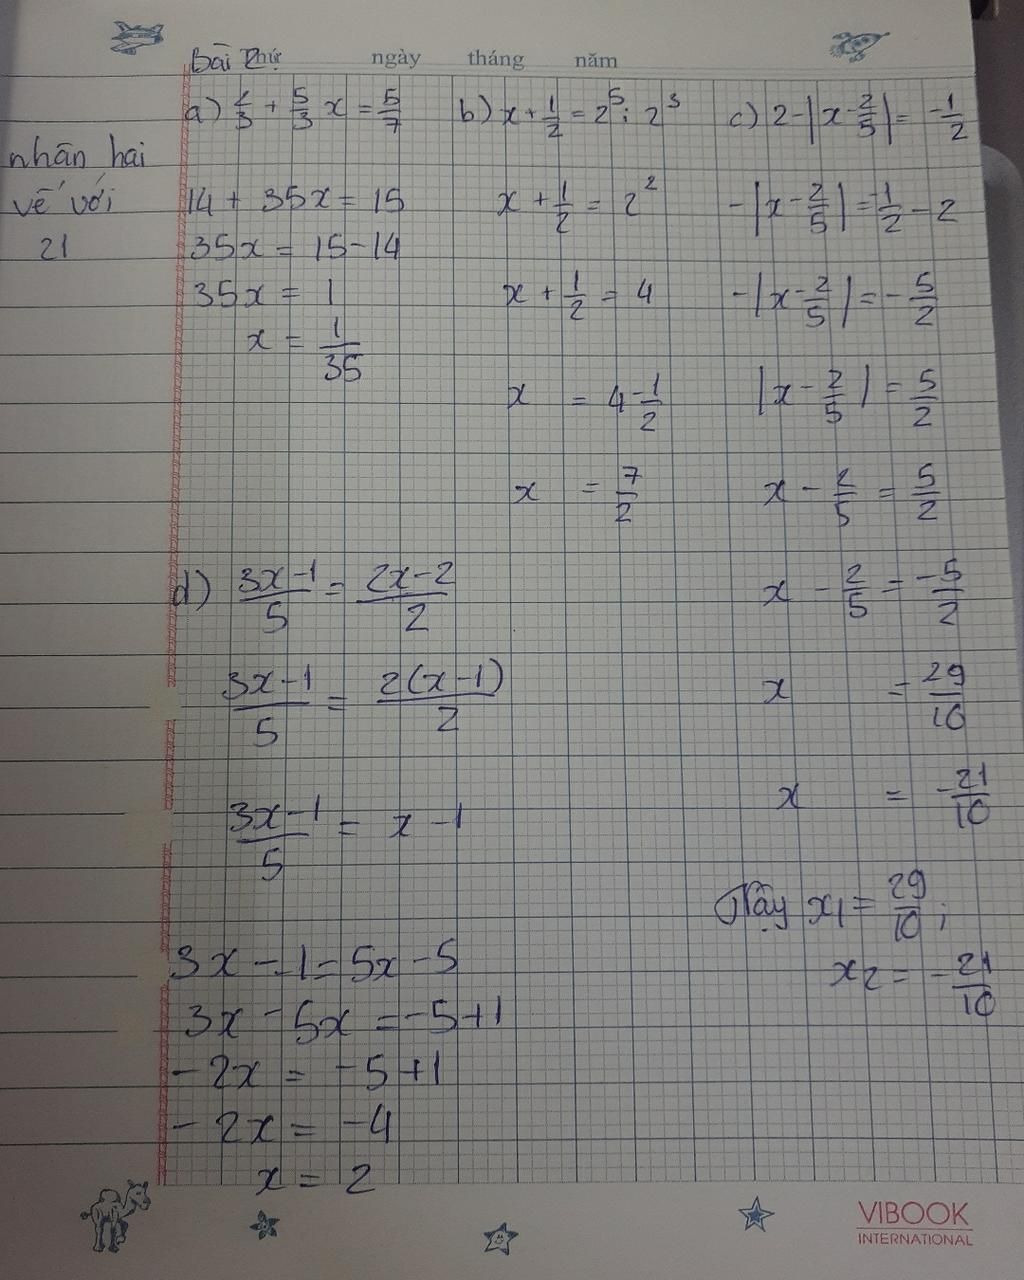 Bài 2 Thứ ngày tháng năm
nhân hai
vế với
21
a) 2/3 + 5/3 x = 5/7
14 + 35x = 15
35x = 15-14
35x = 1
x = 1/35
b) x + 1/2 = 2^5 : 2^3
x + 1/2 = 2^2
x + 1/2 = 4
x = 4 - 1/2
x = 7/2
c) 2 - |x - 2/5| = -1/2
-|x - 2/5| = -1/2 - 2
-|x - 2/5| = -5/2
|x - 2/5| = 5/2
x - 2/5 = 5/2
x - 2/5 = -5/2
x = 29/10
x = -21/10
Vậy x1 = 29/10 ;
x2 = -21/10
d) (3x-1)/5 = (2x-2)/2
(3x-1)/5 = 2(x-1)/2
(3x-1)/5 = x - 1
3x - 1 = 5x - 5
3x - 5x = -5+1
-2x = -5+1
-2x = -4
x = 2
VIBOOK
INTERNATIONAL